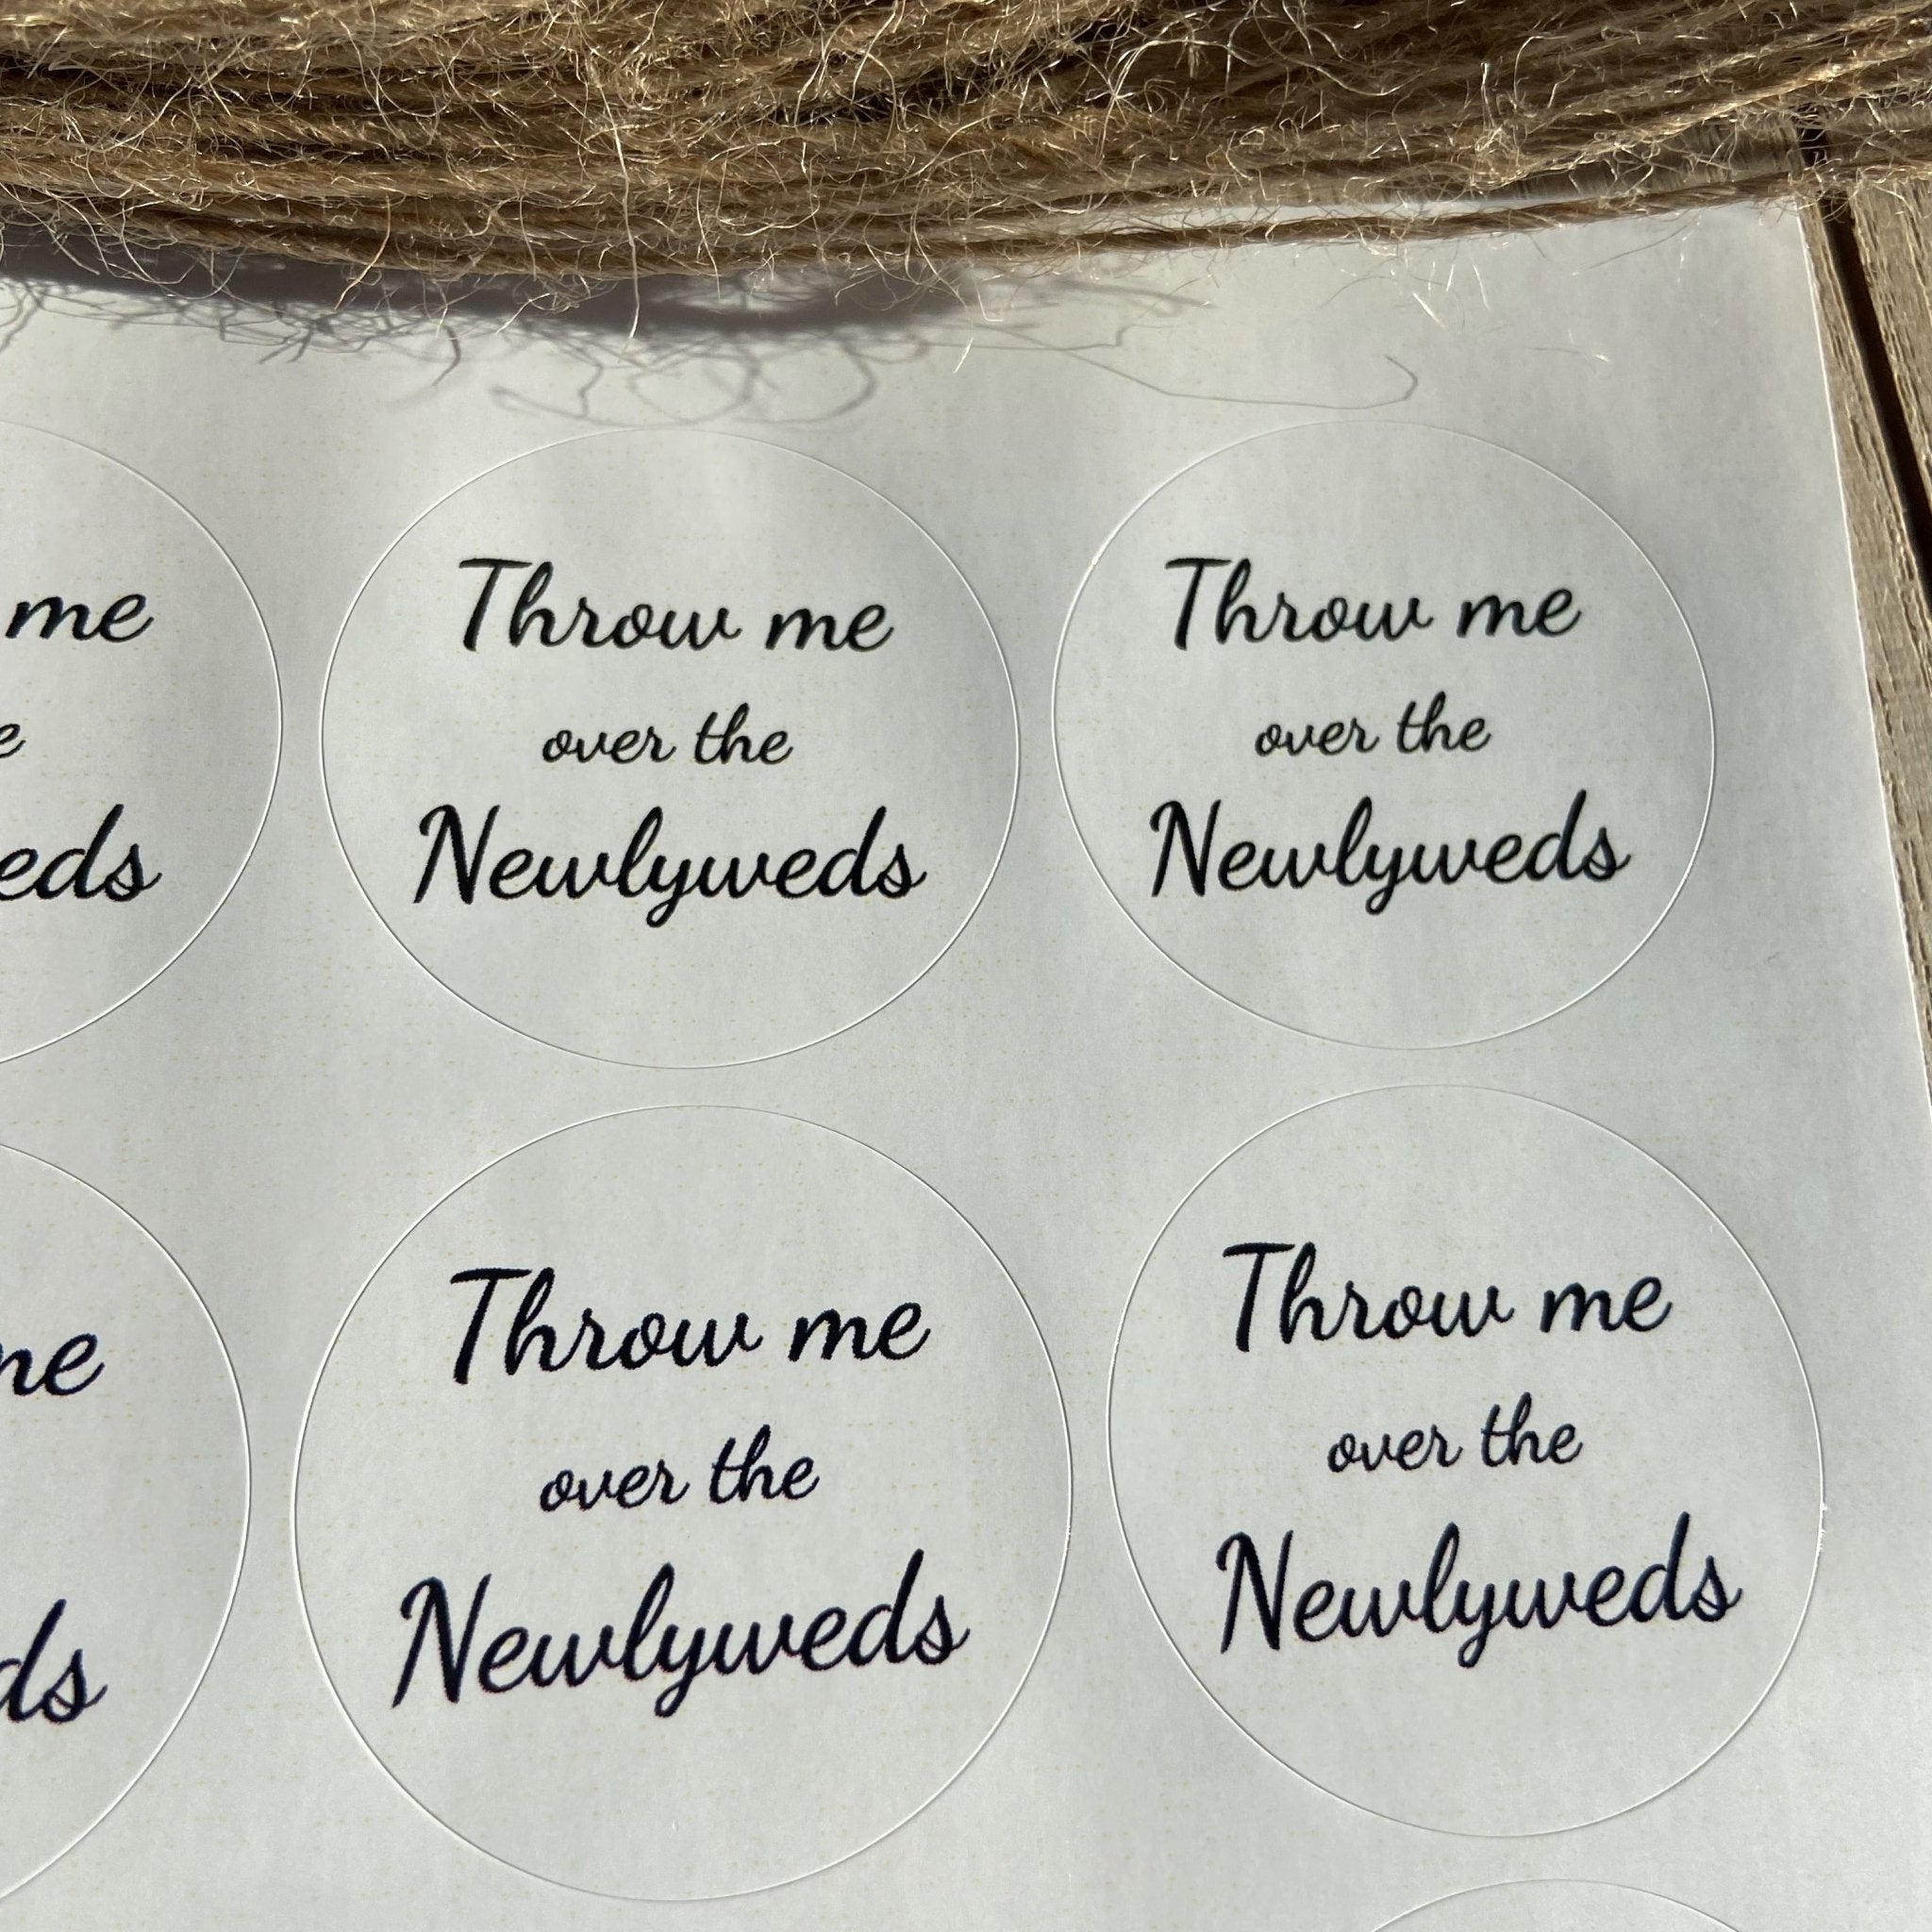 me
Throw me
over the
Newlyweds
Throw me
over the
Newlyweds
Throw me
over the
Newlyweds
Throw me
over the
Newlyweds